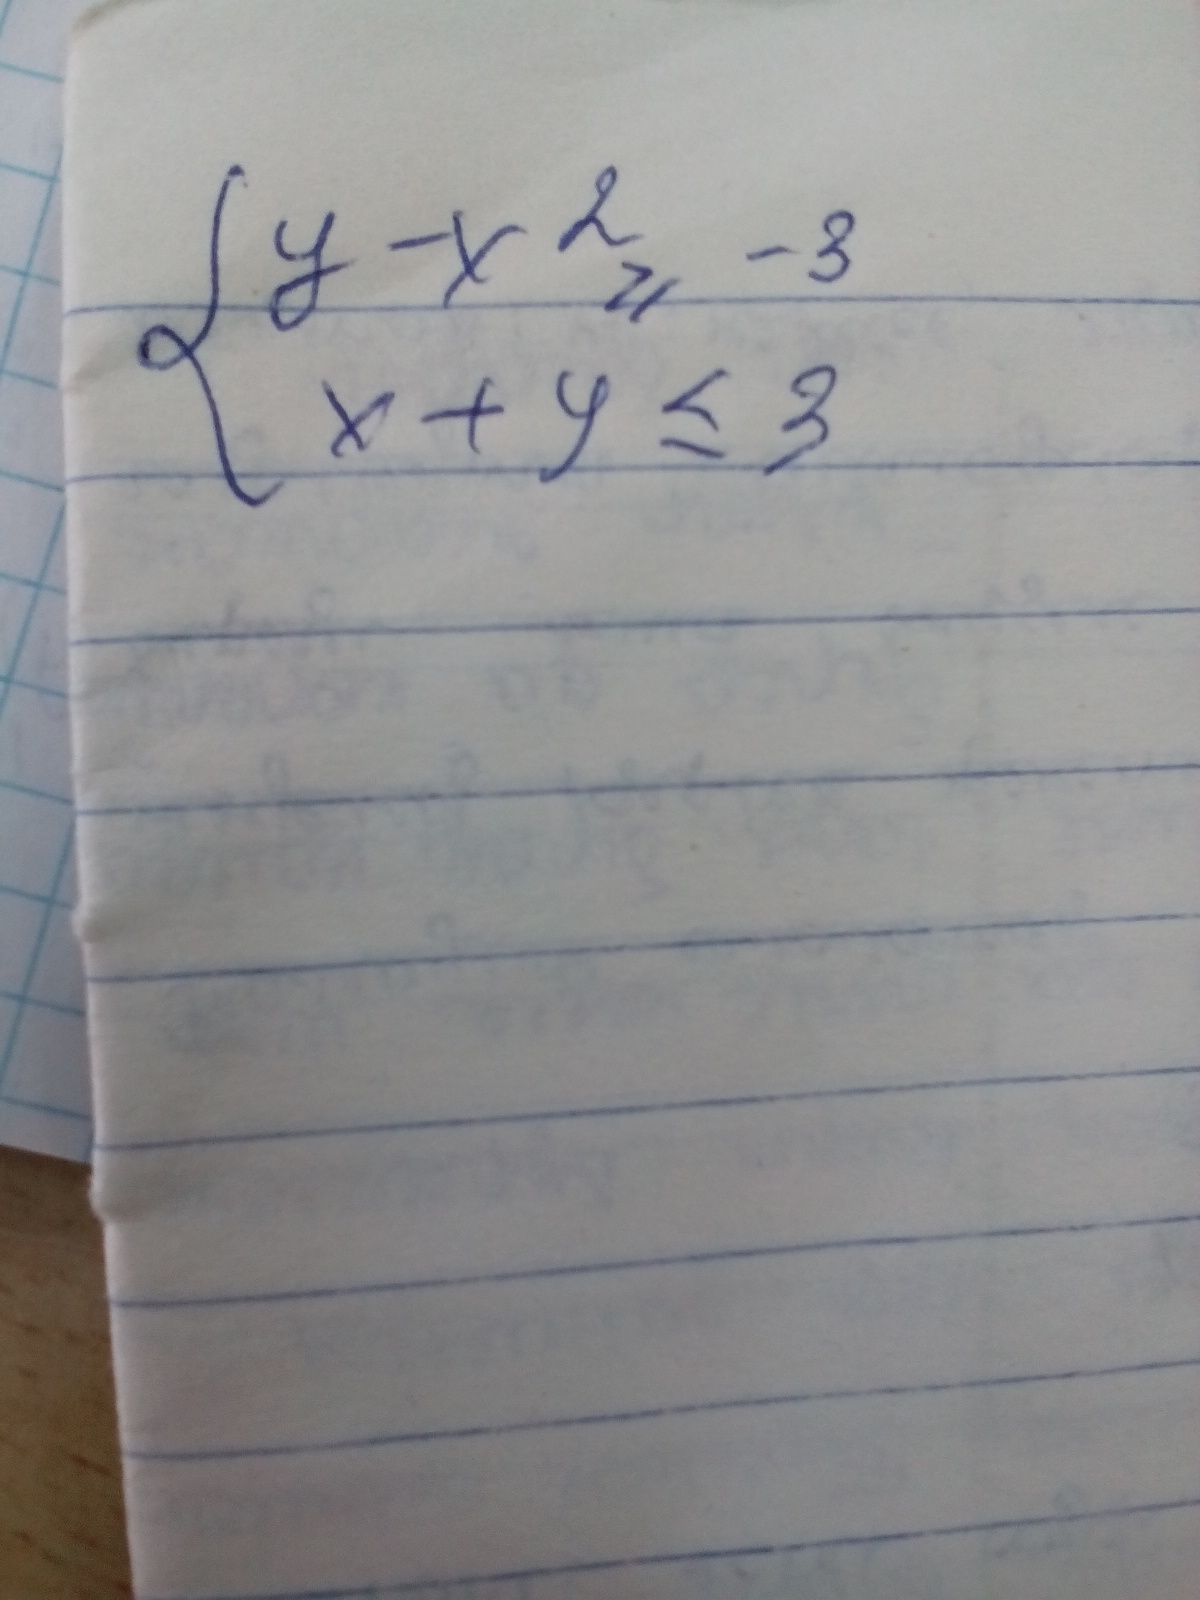 { y - x² ≥ -3
x + y ≤ 3